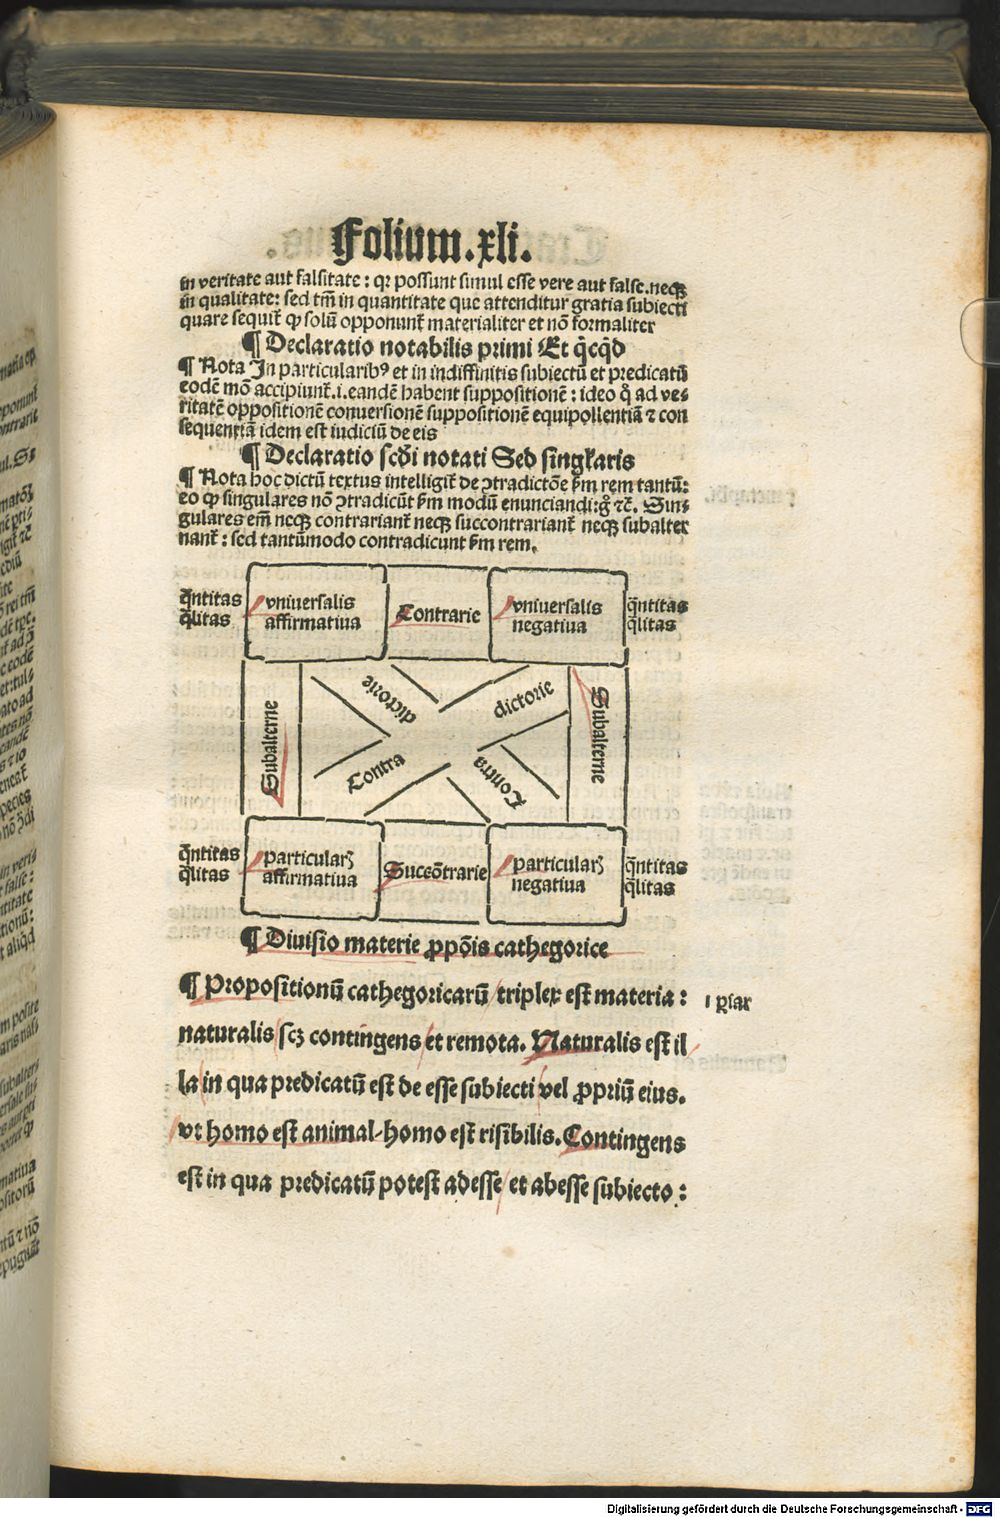 Folium.xli.
in veritate aut falsitate : qꝛ possunt simul esse vere aut false.neqꝫ
in qualitate: sed tm̄ in quantitate que attenditur gratia subiecti
quare sequit᷑ ꝙ solū opponunt᷑ materialiter et nō formaliter
¶ Declaratio notabilis primi Et q̄cq̄d
¶ Nota In particularibꝰ et in indiffinitis subiectū et predicatū
eodē mō accipiunt᷑.i.eandē habent suppositionē : ideo q̊ ad ve⸗
ritatē oppositionē conuersionē suppositionē equipollentiā ⁊ con
sequentiā idem est iudiciū de eis
¶ Declaratio scd̄i notati Sed singl̓aris
¶ Nota hoc dictū textus intelligit᷑ de ꝯtradictōe ẜm rem tantū:
eo ꝙ singulares nō ꝯtradicūt ẜm modū enunciandi:g̊ ⁊c̄. Sin⸗
gulares em̄ neqꝫ contrariant᷑ neqꝫ succontrariant᷑ neqꝫ subalter
nant᷑ : sed tantūmodo contradicunt ẜm rem.
q̄ntitas
q̄litas
vniuersalis
affirmatiua
Contrarie
vniuersalis
negatiua
q̄ntitas
q̄litas
Subalterne
dictorie
dictorie
Contra
Contra
Subalterne
q̄ntitas
q̄litas
particularꝫ
affirmatiua
Succōtrarie
particularꝫ
negatiua
q̄ntitas
q̄litas
¶ Diuisio materie ꝓpōis cathegorice
¶ Propositionū cathegoricarū triplex est materia :
naturalis scꝫ contingens et remota. Naturalis est il
la in qua predicatū est de esse subiecti vel ꝓpriū eius.
vt homo est animal-homo est risibilis.Contingens
est in qua predicatū potest adesse et abesse subiecto :
Digitalisierung gefördert durch die Deutsche Forschungsgemeinschaft - DFG